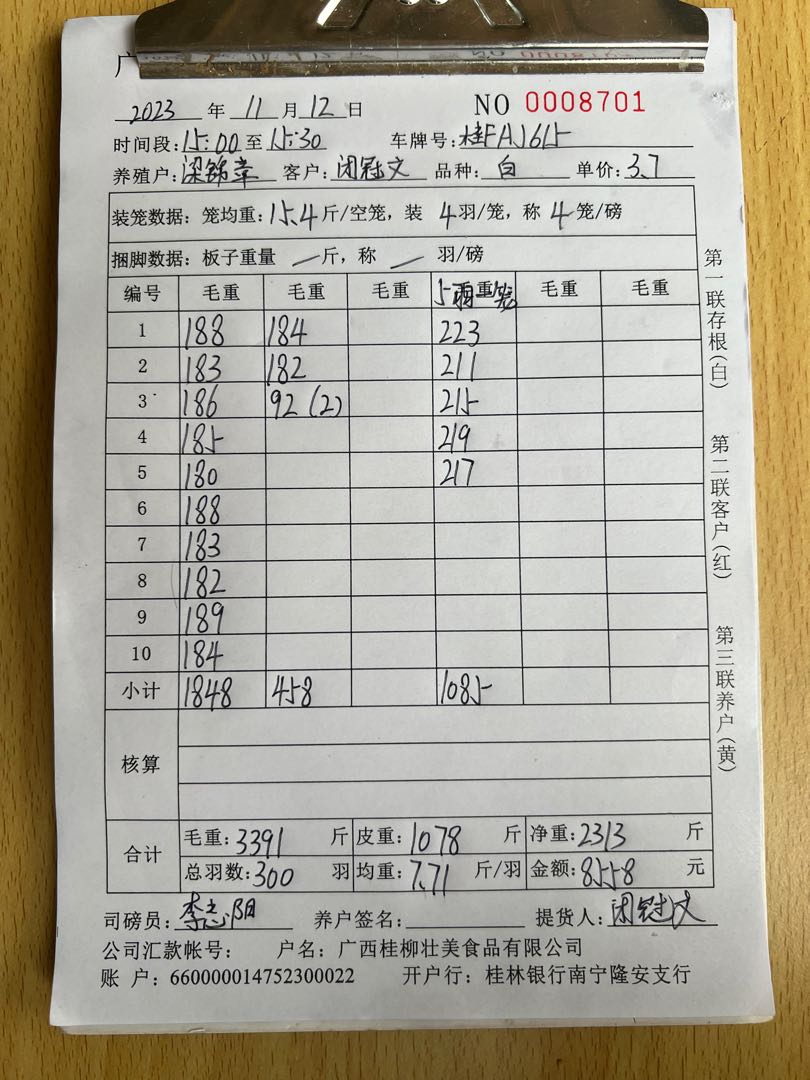 广
2023 年 11 月 12 日 NO 0008701
时间段:15:00 至 15:30 车牌号:桂FAJ615
养殖户:梁锦章 客户:闭冠文 品种:白 单价:3.7
装笼数据:笼均重:15.4斤/空笼,装 4羽/笼,称 4笼/磅
捆脚数据:板子重量 — 斤,称 — 羽/磅
编号 毛重 毛重 毛重 5羽重笼 毛重 毛重
1 188 184 223
2 183 182 211
3 186 92(2) 215
4 185 219
5 180 217
6 188
7 183
8 182
9 189
10 184
小计 1848 458 1085
核算
合计 毛重:3391 斤 皮重:1078 斤 净重:2313 斤
总羽数:300 羽 均重:7.71 斤/羽 金额:8558 元
司磅员:李志阳 养户签名: 提货人:闭冠文
公司汇款帐号: 户名:广西桂柳壮美食品有限公司
账 户:660000014752300022 开户行:桂林银行南宁隆安支行
第一联存根(白) 第二联客户(红) 第三联养户(黄)